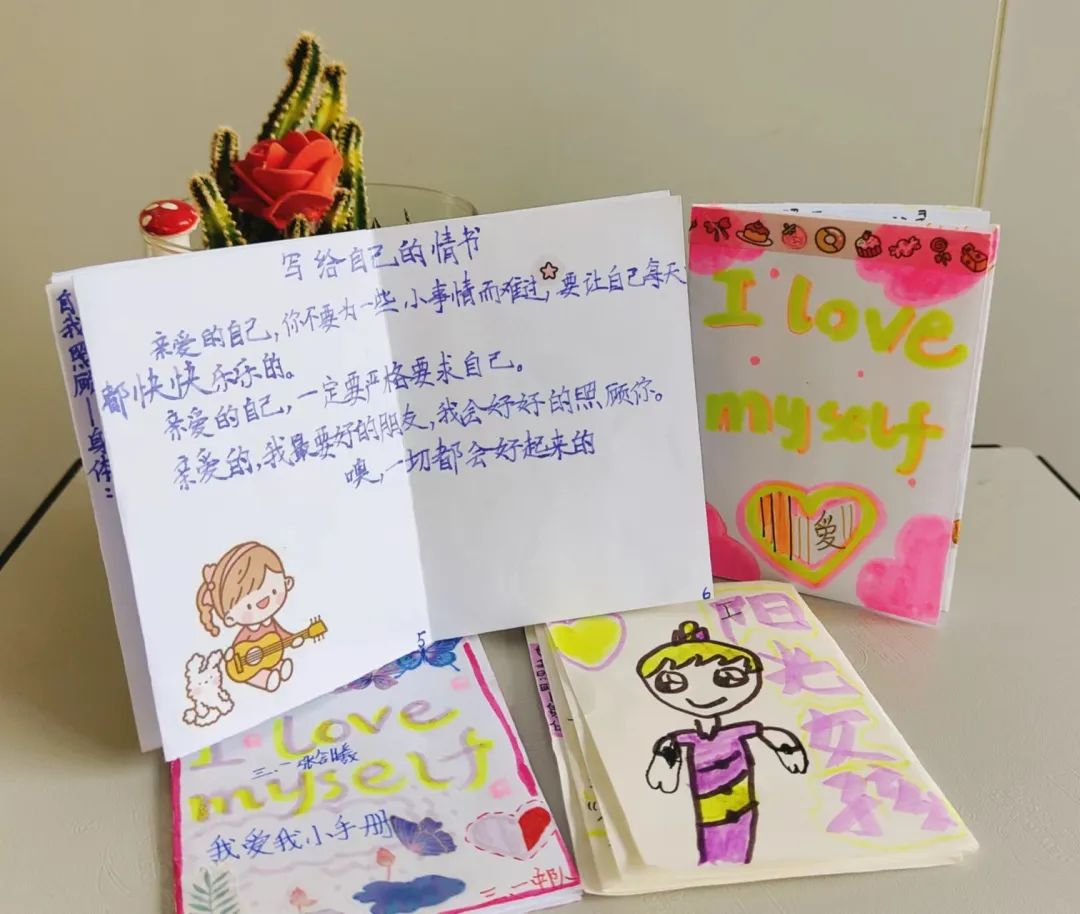 写给自己的情书
亲爱的自己，你不要为一些小事情而难过，要让自己每天
都快快乐乐的。
亲爱的自己，一定要严格要求自己。
亲爱的，我最要好的朋友，我会好好的照顾你。
噢，一切都会好起来的
5
6
自我照顾—身体：
I love
myself
爱
I love
三.一
myself
我爱我小手册
三.一中队
阳光女孩